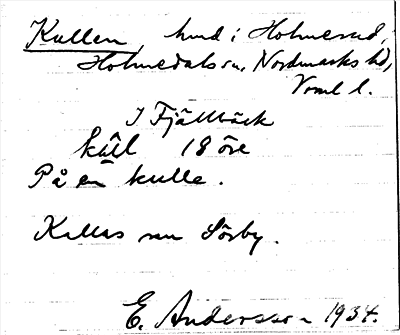 Kullen, hmd i Holmerud,
Holmedals sn, Nordmarks hd,
Vrml l.
I Fjällbäck
kûl̄ 18 öre
På en kulle.
Kallas nu Sörby.
E. Andersson 1934.